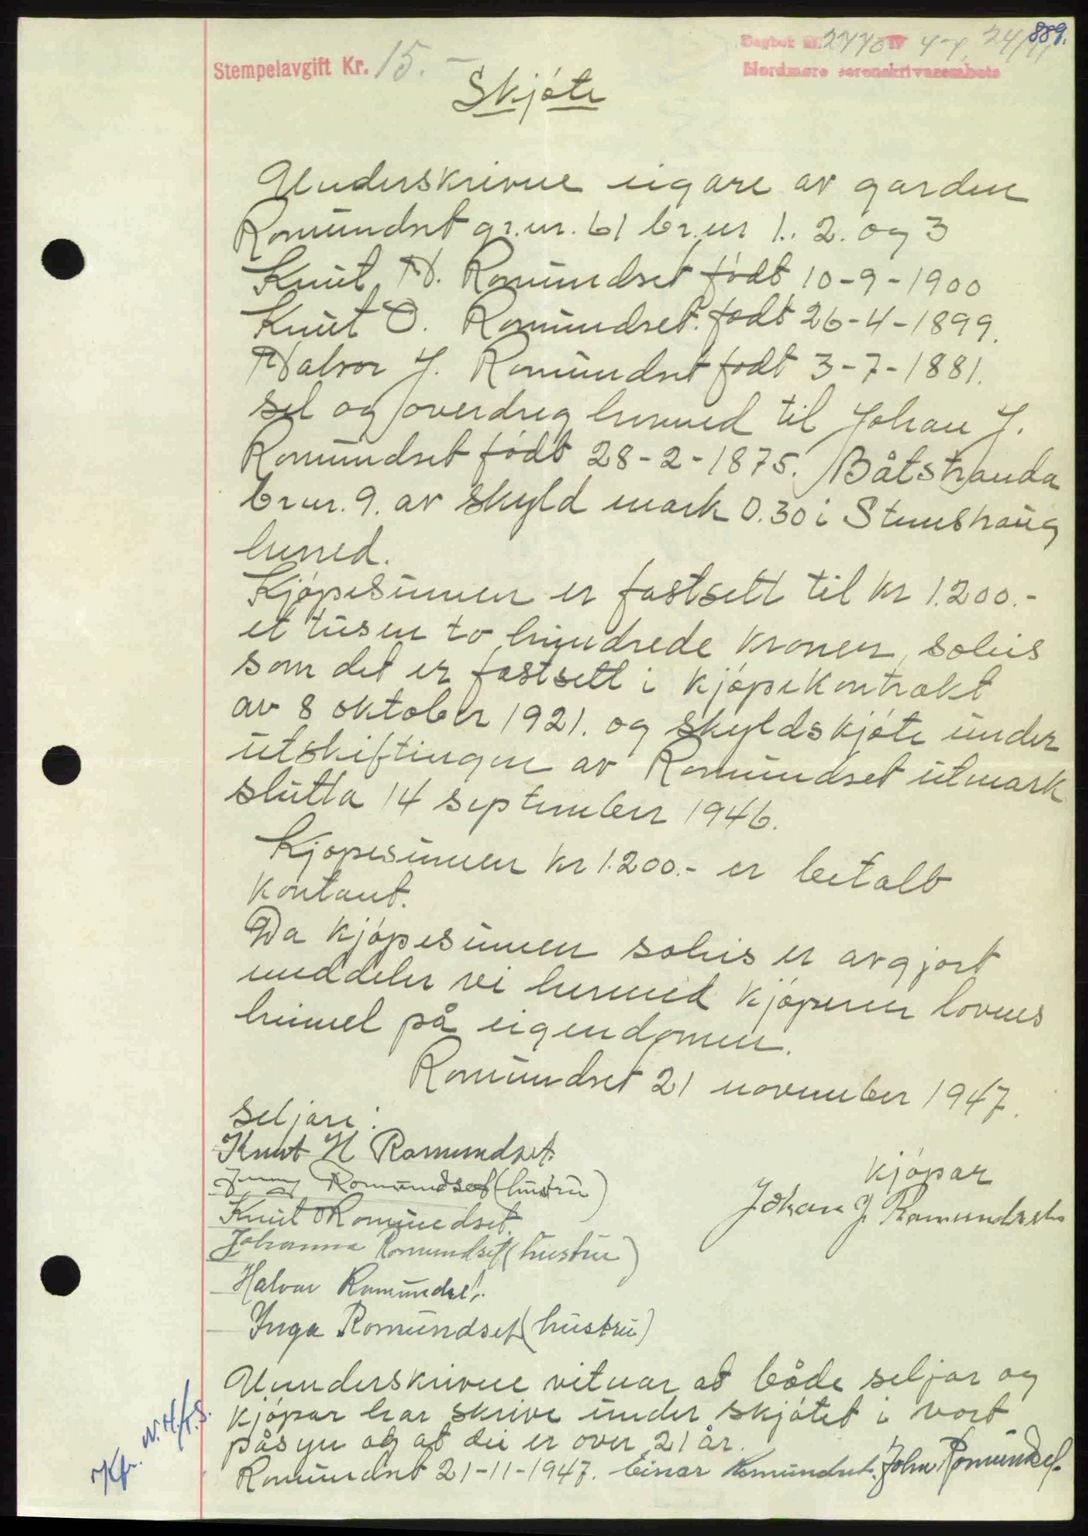 889.
Stempelavgift Kr. 15.-
Dagbok nr. 2770 47 24/11
Nordmøre sorenskriverembete
Skjøte
Underskrivne eigare av garden
Romundset gr.nr. 61 br.nr 1. 2. og 3
Knut H. Romundset født 10-9-1900
Knut O. Romundset. født 26-4-1899.
Halvor J. Romundset født 3-7-1881.
sel og overdreg hermed til Johan J.
Romundset født 28-2-1875. Båtstranda
br.nr. 9. av skyld mark 0.30 i Stemshaug
herred.
Kjøpesumen er fastsett til kr 1.200.-
et tusen to hundrede kroner, solis
som det er fastsett i kjøpekontrakt
av 8 oktober 1921. og skyldskjøte under
utskiftingen av Romundset utmark
slutta 14 september 1946.
Kjøpesumen kr 1.200.- er betalt
kontant.
Da kjøpesumen solis er avgjort
meddeler vi hermed kjøperen lovnes
heimel på eigendomen.
Romundset 21 november 1947.
seljare:
Knut H Romundset.
Jenny Romundset (hustru)
Knut O Romundset.
Johanna Romundset (hustru)
Halvor Romundset.
Inga Romundset (hustru)
kjøpar
Johan J Romundset
Uunderskrivne vitnar at både seljar og
kjøpar har skrive under skjøtet i vort
påsyn og at dei er over 21 år.
Romundset 21-11-1947. Einar Romundset. John Romundset.
N.H./T.S.
Kfr.